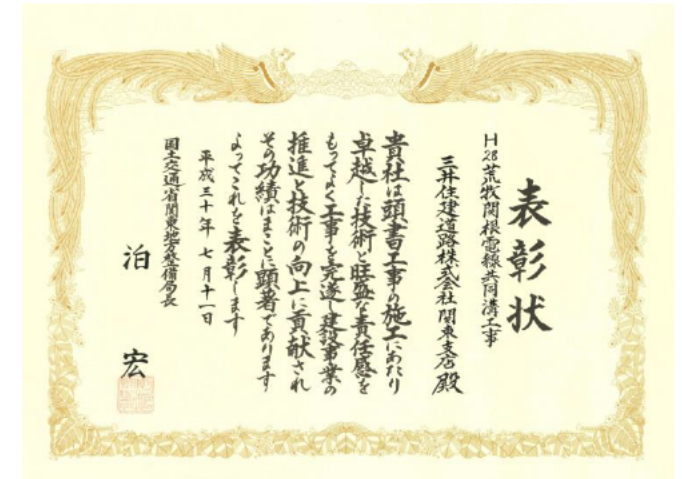 表彰状
H28荒牧関根電線共同溝工事
三井住建道路株式会社関東支店 殿
貴社は頭書工事の施工にあたり
卓越した技術と旺盛な責任感を
もってよく工事を完遂し建設事業の
推進と技術の向上に貢献され
その功績はまことに顕著であります
よってこれを表彰します
平成三十年七月十一日
国土交通省関東地方整備局長
泊 宏